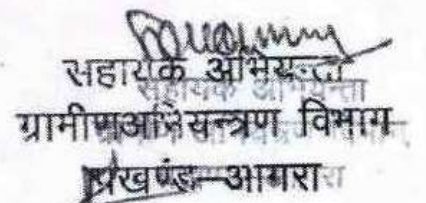 सहायक अभियन्ता
ग्रामीण अभियन्त्रण विभाग
प्रखण्ड-आगरा